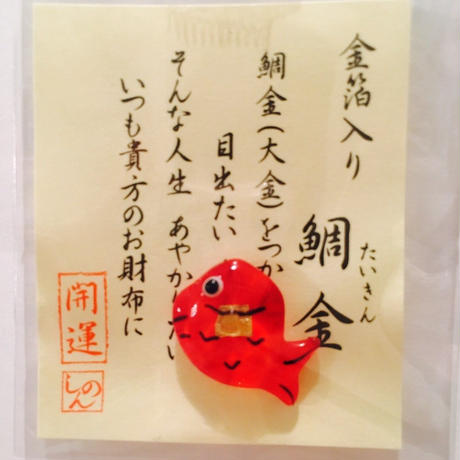 金箔入り
鯛金
たいきん
鯛金(大金)をつか
目出たい
そんな人生 あやかりたい
いつも貴方のお財布に
開運
しのん